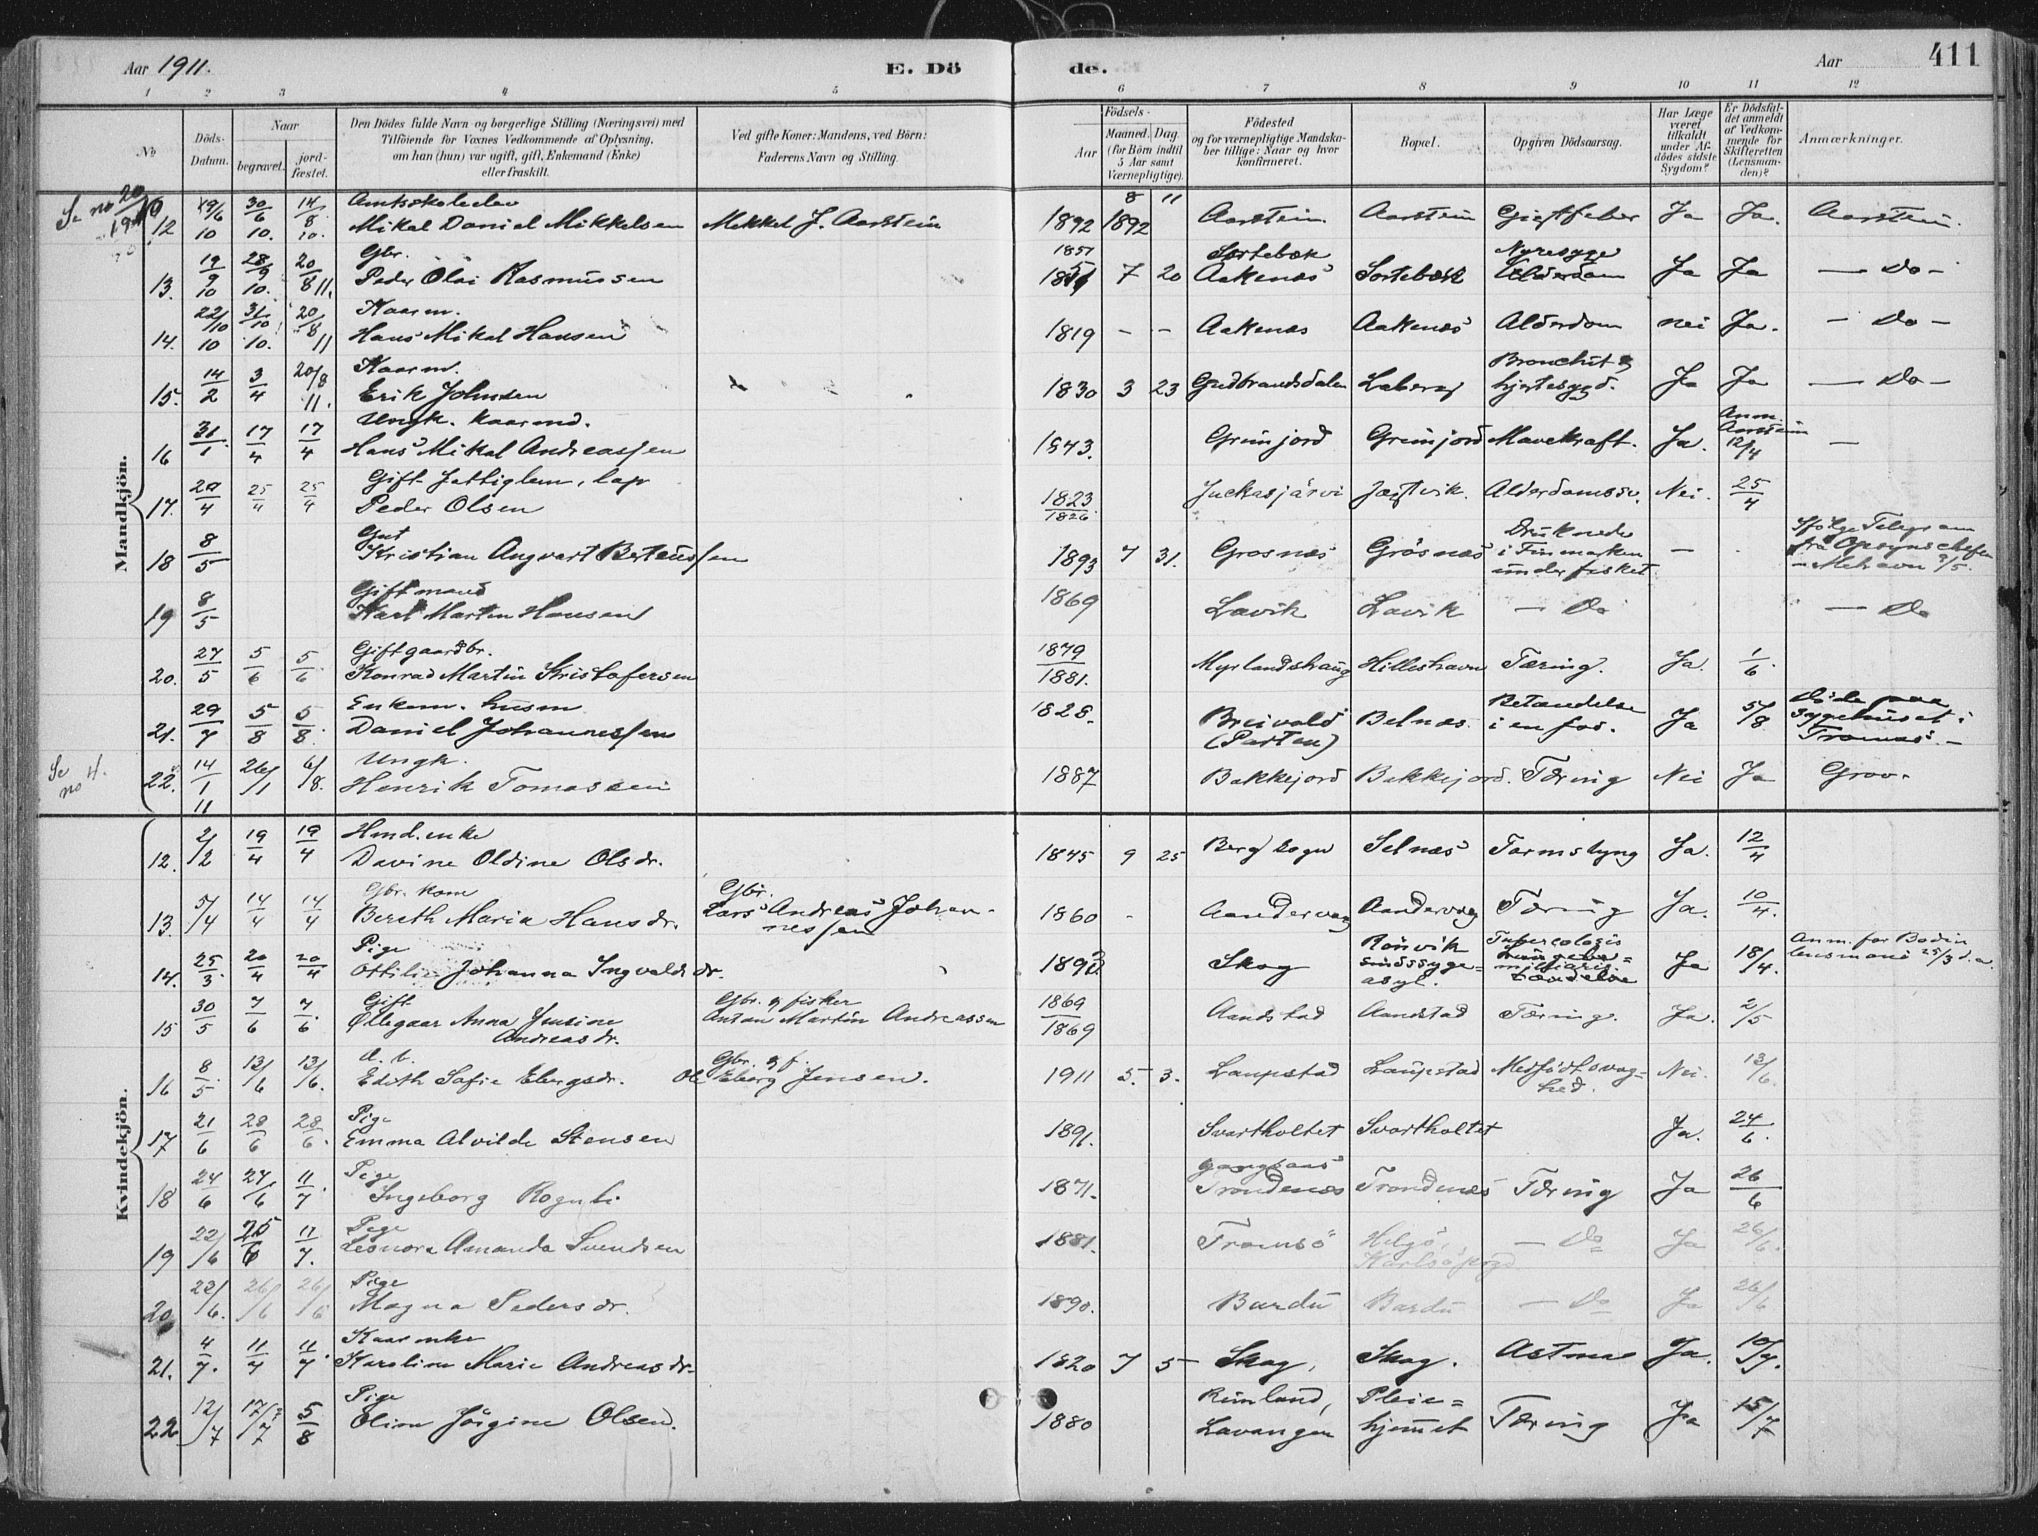 Aar 1911.
E. Dö
de.
Aar
411
1 2 3 4 5 6 7 8 9 10 11 12
No
Döds-Datum.
Naar
begravet.
jord-fæstet.
Den Dödes fulde Navn og borgerlige Stilling (Næringsvei) med
Tilföiende for Voxnes Vedkommende af Oplysning,
om han (hun) var ugift, gift, Enkemand (Enke)
eller fraskilt.
Ved gifte Koner: Mandens, ved Börn:
Faderens Navn og Stilling.
Födsels-
Aar
Maaned. Dag.
(for Börn indtil
5 Aar samt
Værnepligtige).
Födested
og for værnepligtige Mandska-
ber tillige: Naar og hvor
konfirmeret.
Bopæl.
Opgiven Dödsaarsag.
Har Læge
været
tilkaldt
under Af-
dödes sidste
Sygdom?
Er Dödsfal-
det anmeldt
af Vedkom-
mende for
Skifteretten
(Lensman-
den)?
Anmærkninger.
Mandkjön.
Se no 20
12 19/6 10 30/6 10. 14/8 10. Mikal Daniel Mikkelsen Mikkel J. Aarstein 1892 1892 8 11 Aarstein Aarstein Gigtfeber Ja Ja. Aarstein.
13. 19/9 10 28/9 10. 20/8 11. Gbr.
Peder Olai Rasmussen 1851 7 20 Sortebæk Aakenæs Sortebæk Nyresyge Alderdom Ja Ja — Do —
14. 22/10 10 31/10 10. 20/8 11 Kaarm.
Hans Mikal Hansen 1819 - - Aakenæs Aakenæs Alderdom nei Ja. — Do —
15. 14/2 3/4 20/8 11. Kaarm.
Erik Johnsen 1830 3 23 Gudbrandsdalen Laberg Bronchit og hjertesygd. Ja Ja — Do —
16 31/1 17/4 17/4 Ungk. kaarmd.
Hans Mikal Andreassen 1843. Grimjord Grimjord Mavekræft. Ja. Anm. Aarstein 12/4 —
17. 20/4 25/4 25/4 Gift Fattiglem, lap
Peder Olsen 1823 1826 Juckasjärvi Jægtvik. Alderdomssv. Nei. 25/4
18 8/5 Gut
Kristian Angvart Berteussen 1893 7 31. Grosnæs Grösnæs Druknede i Finmarken under fisket — Ifölge Telegram fra Opsynschefen Mehavn 9/5.
19 8/5 Giftmand
Karl Martin Hansen 1869 Lavik Lavik — Do — Do
20. 27/5 5/6 5/6 Gift gaardbr.
Konrad Martin Kristofersen 1879 1881. Myrlandshaug Hilleshavn Tæring. Ja. 1/6
21. 29/7 5/8 5/8 Enkem. husm
Daniel Johannessen 1828. Breivold (Parten) Belnæs. Betændelse i en fod. Ja 5/8 Döde paa Sygehuset i Tromsö. —
Se no 4.
22. 14/1 11 26/1 6/8. Ungk.
Henrik Tomassen 1887 Bakkejord Bakkejord. Tæring Nei Ja Grov.
Kvindekjön.
12. 2/2 19/4 19/4 Hmd. enke
Davine Oldine Olsdr. 1845 9 25 Berg sogn Selnæs Tarmslyng Ja. 12/4
13. 5/4 14/4 14/4 Gbr. kone
Bereth Maria Hansdr. Gbr. Lars Andreas Johannessen 1860 - Aandervaag Aandervaag Tæring Ja. 10/4.
14. 25/3 20/4 20/4 Pige
Ottilie Johanna Ingvaldsdr. Skog Rönvik sindssygeasyl. Ja 18/4. Anm. for Bodin lensmand 25/3 d.a.
15 30/5 7/6 7/6. Gift
Ollegaar Anna Jensine Andreasdr. Gbr. og fisker Anton Martin Andreassen 1869 1869 Aandstad Aandstad Tæring. Ja. 2/5
16 8/5. 13/6 13/6. Edith Sofie Ebergsdr. Gbr. og f. Ole Eberg Jensen. 1911 5. 3. Laupstad Laupstad Medfödt svaghed. Nei. 13/6.
17 21/6 28/6 28/6. Pige
Emma Alvilde Stensen 1891. Svartholtet Svartholtet Ja. 24/6.
18 24/6 27/6 11/7. Pige
Ingeborg Rognli 1871. Trondenæs Trondenæs Tæring Ja 26/6
19 22/6 25/6 11/7. Pige
Leonora Amanda Svendsen 1881. Tromsö Helgö, Karlsö — Do Ja 26/6.
20 23/6. 26/6 26/6 Pige
Magna Pedersdr. 1890. Bardu Bardu — Do Ja 26/6
21. 4/7. 11/7 11/7. Kaarenke
Karoline Marie Andreasdr. 1820 7 5 Skog, Skog. Astma Ja. 10/7.
22 12/7 17/7 5/8 Pige
Oline Jörgine Olsen. 1880 Rimland, Lavangen Pleiehjemmet Tæring Ja 15/7